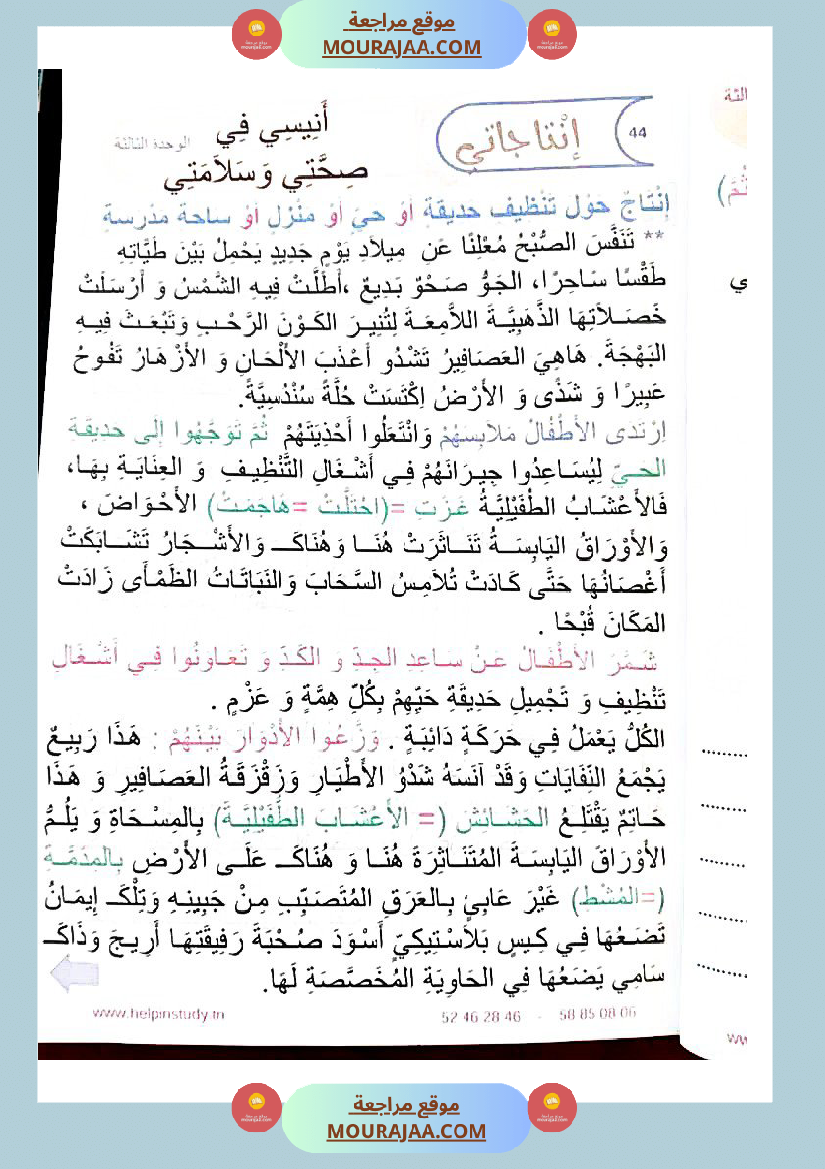 موقع مراجعة
MOURAJAA.COM
44
إِنْتاجاتي
أَنِيسِي فِي
صِحَّتِي وَسَلاَمَتِي
الوحدة الثالثة
إِنْتَاجٌ حَوْلَ تَنْظِيفِ حَدِيقَةٍ أَوْ حَيٍّ أَوْ مَنْزِلٍ أَوْ سَاحَةِ مَدْرَسَةٍ
** تَنَفَّسَ الصُّبْحُ مُعْلِنًا عَنِ مِيلاَدِ يَوْمٍ جَدِيدٍ يَحْمِلُ بَيْنَ طَيَّاتِهِ
طَقْسًا سَاحِرًا، الجَوُّ صَحْوٌ بَدِيعٌ ،أَطَلَّتْ فِيهِ الشَّمْسُ وَ أَرْسَلَتْ
خَصَلاَتِهَا الذَّهَبِيَّةَ اللاَّمِعَةَ لِتُنِيرَ الكَوْنَ الرَّحْبِ وَتَبْعَثَ فِيهِ
البَهْجَةَ. هَاهِيَ العَصَافِيرُ تَشْدُو أَعْذَبَ الأَلْحَانِ وَ الأَزْهَارُ تَفُوحُ
عَبِيرًا وَ شَذًى وَ الأَرْضُ اِكْتَسَتْ حُلَّةً سُنْدُسِيَّةً.
اِرْتَدَى الأَطْفَالُ مَلاَبِسَهُمْ وَانْتَعَلُوا أَحْذِيَتَهُمْ ثُمَّ تَوَجَّهُوا إِلَى حَدِيقَةِ
الحَيِّ لِيُسَاعِدُوا جِيرَانَهُمْ فِي أَشْغَالِ التَّنْظِيفِ وَ العِنَايَةِ بِهَا،
فَالأَعْشَابُ الطُّفَيْلِيَّةُ غَزَتِ =(احْتَلَّتْ =هَاجَمَتْ) الأَحْوَاضَ ،
وَالأَوْرَاقُ اليَابِسَةُ تَنَاثَرَتْ هُنَا وَهُنَاكَ وَالأَشْجَارُ تَشَابَكَتْ
أَغْصَانُهَا حَتَّى كَادَتْ تُلاَمِسُ السَّحَابَ وَالنَبَاتَاتُ الظَمْأَى زَادَتْ
المَكَانَ قُبْحًا .
شَمَّرَ الأَطْفَالُ عَنْ سَاعِدِ الجِدِّ و الكَدِّ وَ تَعَاوَنُوا فِي أَشْغَالِ
تَنْظِيفِ وَ تَجْمِيلِ حَدِيقَةِ حَيِّهِمْ بِكُلِّ هِمَّةٍ وَ عَزْمٍ .
الكُلُّ يَعْمَلُ فِي حَرَكَةٍ دَائِبَةٍ . وَزَّعُوا الأَدْوَارَ بَيْنَهُمْ : هَذَا رَبِيعٌ
يَجْمَعُ النّفَايَاتِ وَقَدْ آنَسَهُ شَدْوُ الأَطْيَارِ وَزَقْزَقَةُ العَصَافِيرِ وَ هَذَا
حَاتِمٌ يَقْتَلِعُ الحَشَائِشَ (= الأَعْشَابَ الطُّفَيْلِيَّةَ) بِالمِسْحَاةِ وَ يَلُمُّ
الأَوْرَاقَ اليَابِسَةَ المُتَنَاثِرَةَ هُنَا وَ هُنَاكَ عَلَى الأَرْضِ بِالمِدَمَّةِ
(=المُشْطِ) غَيْرَ عَابِئٍ بِالعَرَقِ المُتَصَبِّبِ مِنْ جَبِينِهِ وَتِلْكَ إِيمَانُ
تَضَعُهَا فِي كِيسٍ بَلاَسْتِيكِيٍّ أَسْوَدَ صُحْبَةَ رَفِيقَتِهَا أَرِيجَ وَذَاكَ
سَامِي يَضَعُهَا فِي الحَاوِيَةِ المُخَصَّصَةِ لَهَا.
www.helpinstudy.tn
52 46 28 46 - 58 85 08 06
موقع مراجعة
MOURAJAA.COM